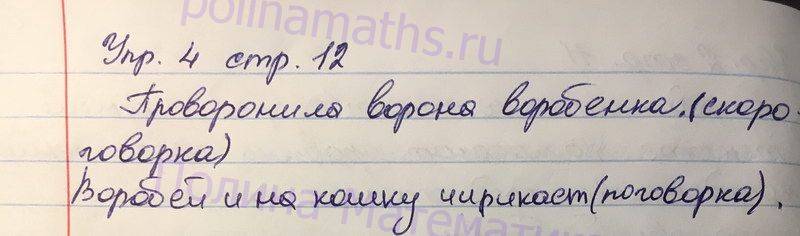 polinamaths.ru
Упр. 4 стр. 12
Проворонила ворона воробенка. (скоро-
говорка)
Воробей и на кошку чирикает (поговорка).
Полина Математика